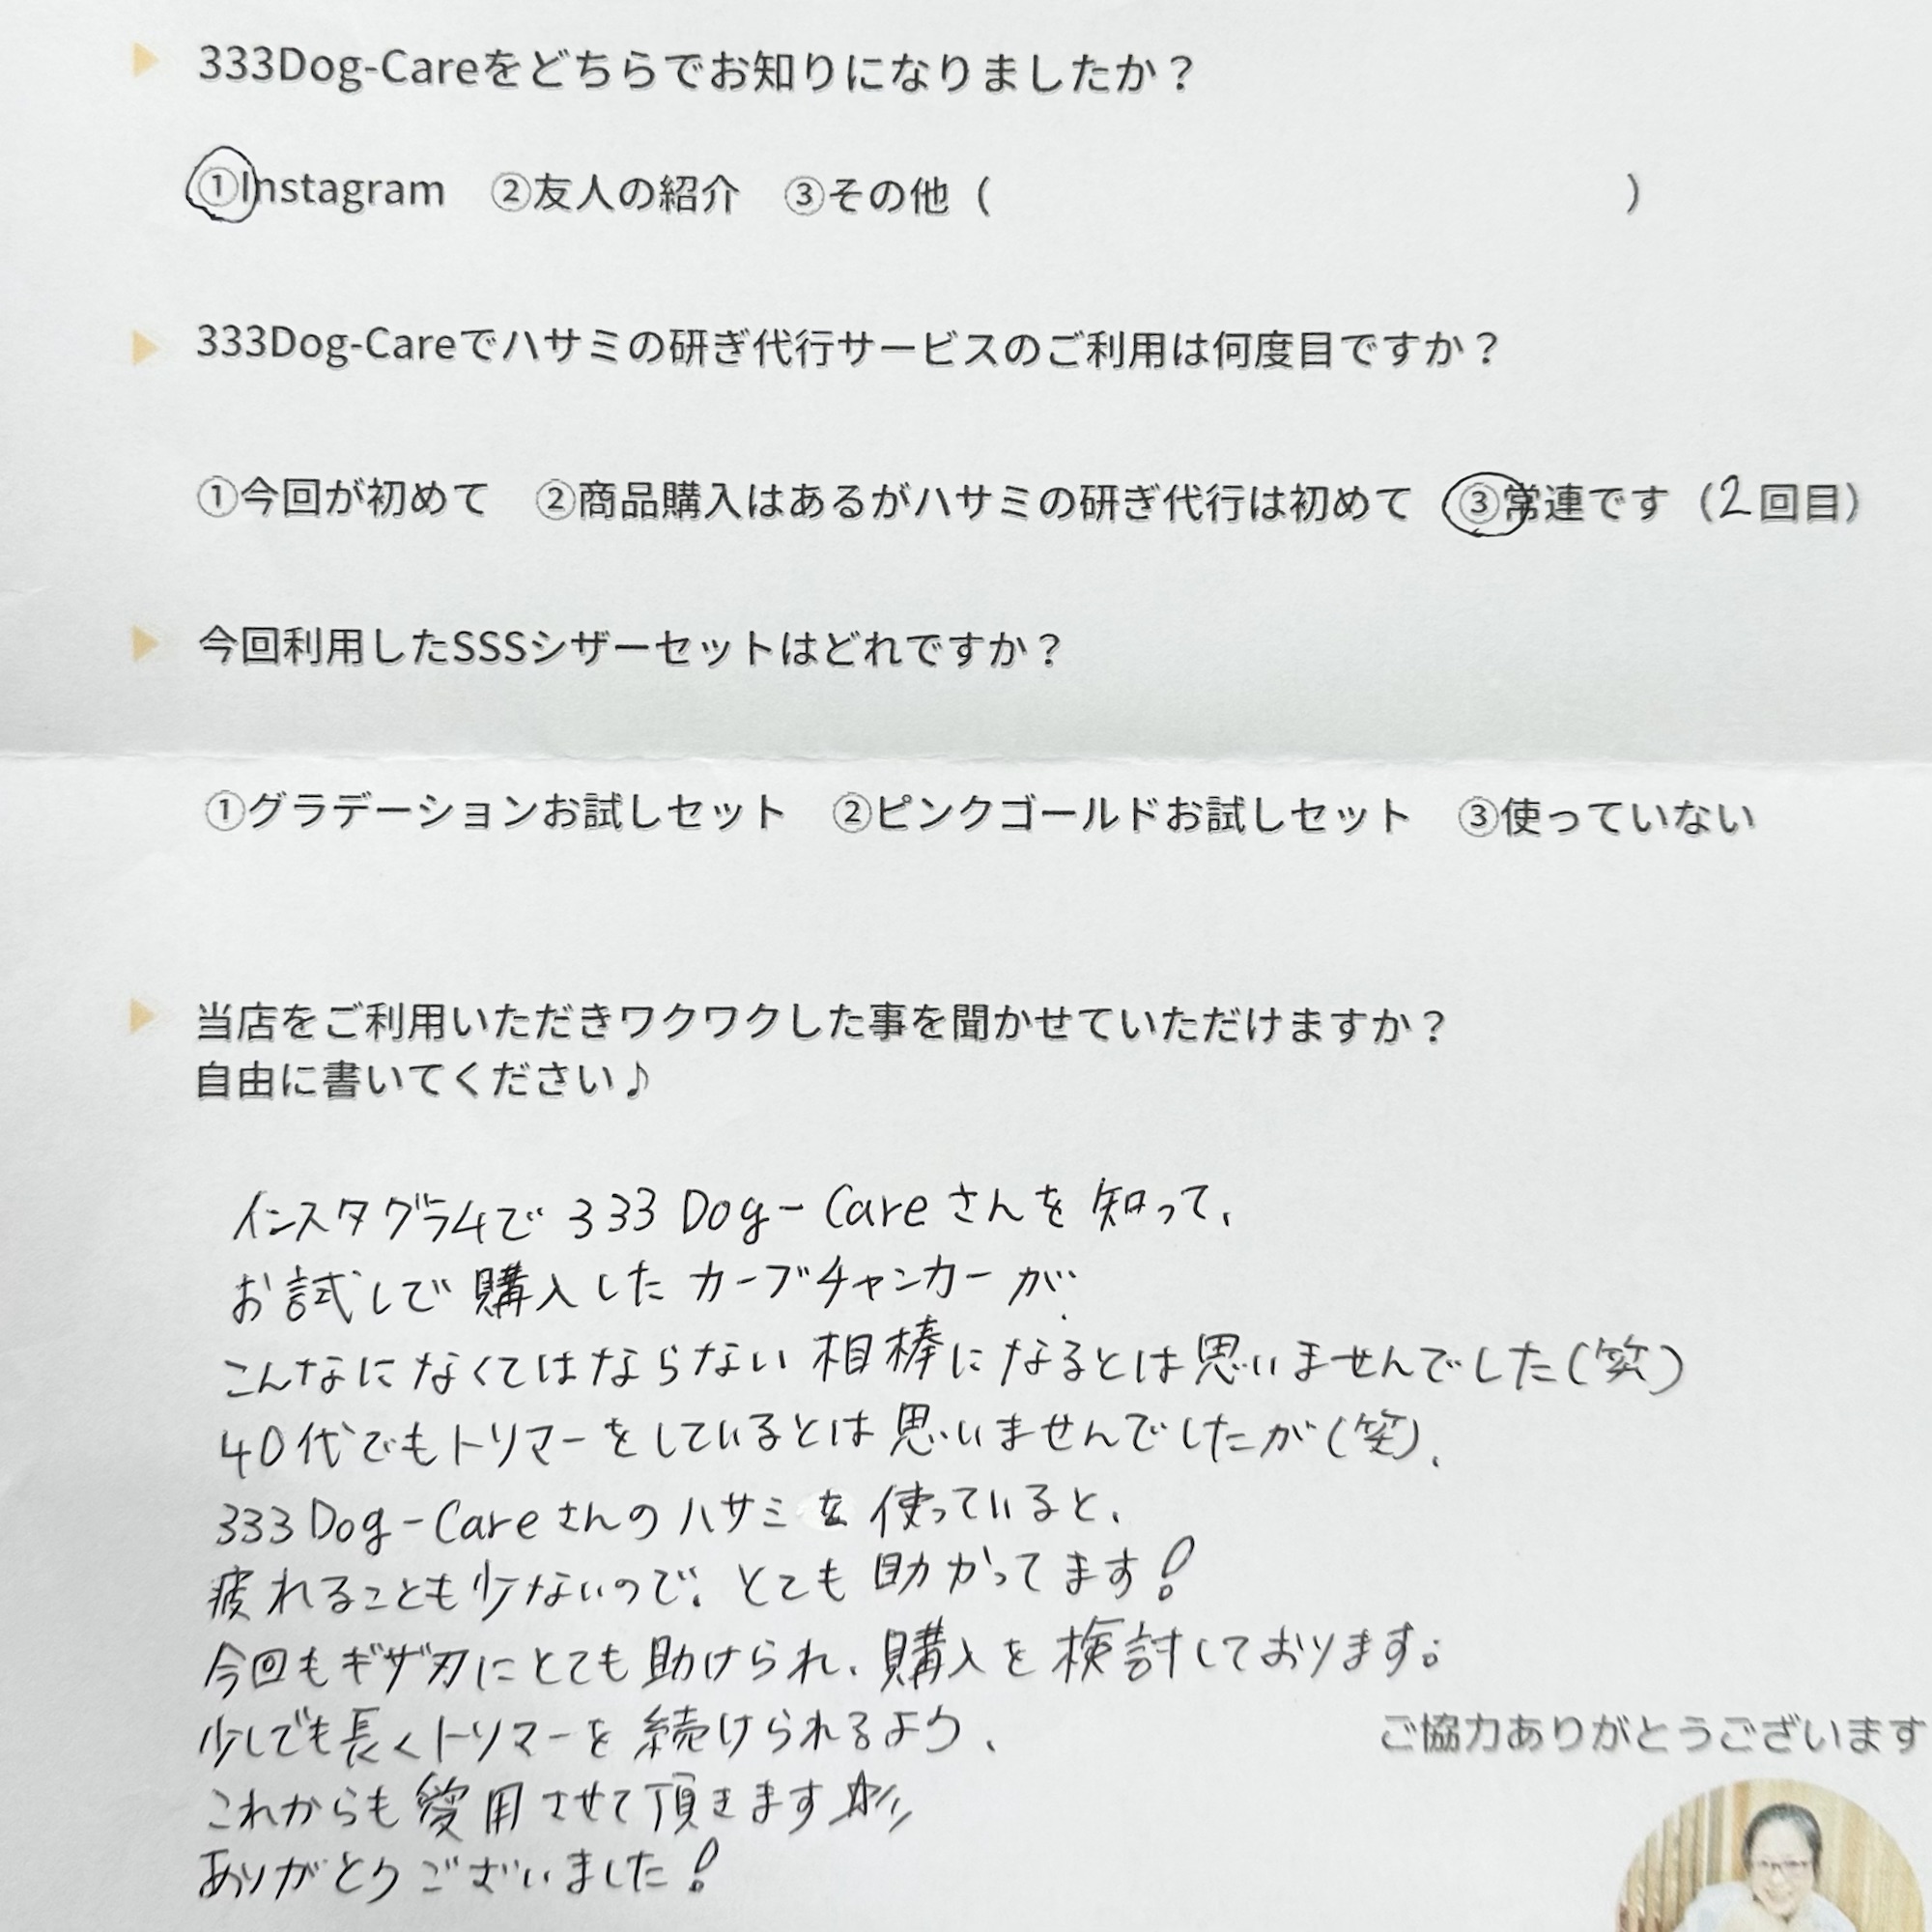 333Dog-Careをどちらでお知りになりましたか？
①Instagram ②友人の紹介 ③その他（ ）
333Dog-Careでハサミの研ぎ代行サービスのご利用は何度目ですか？
①今回が初めて ②商品購入はあるがハサミの研ぎ代行は初めて ③常連です（2回目）
今回利用したSSSシザーセットはどれですか？
①グラデーションお試しセット ②ピンクゴールドお試しセット ③使っていない
当店をご利用いただきワクワクした事を聞かせていただけますか？
自由に書いてください♪
インスタグラムで 333 Dog-Care さんを知って、
お試しで購入したカーブチャンカーが
こんなになくてはならない相棒になるとは思いませんでした(笑)
40代でもトリマーをしているとは思いませんでしたが(笑)、
333 Dog-Care さんのハサミを使っていると、
疲れることも少ないので、とても助かってます!
今回もギザ刃にとても助けられ、購入を検討しております。
少しでも長くトリマーを続けられるよう、
これからも愛用させて頂きます☆彡
ありがとうございました!
ご協力ありがとうございます